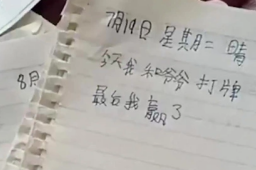 7月19日 星期二 晴
今天我和爷爷打牌
最后我赢了
8月